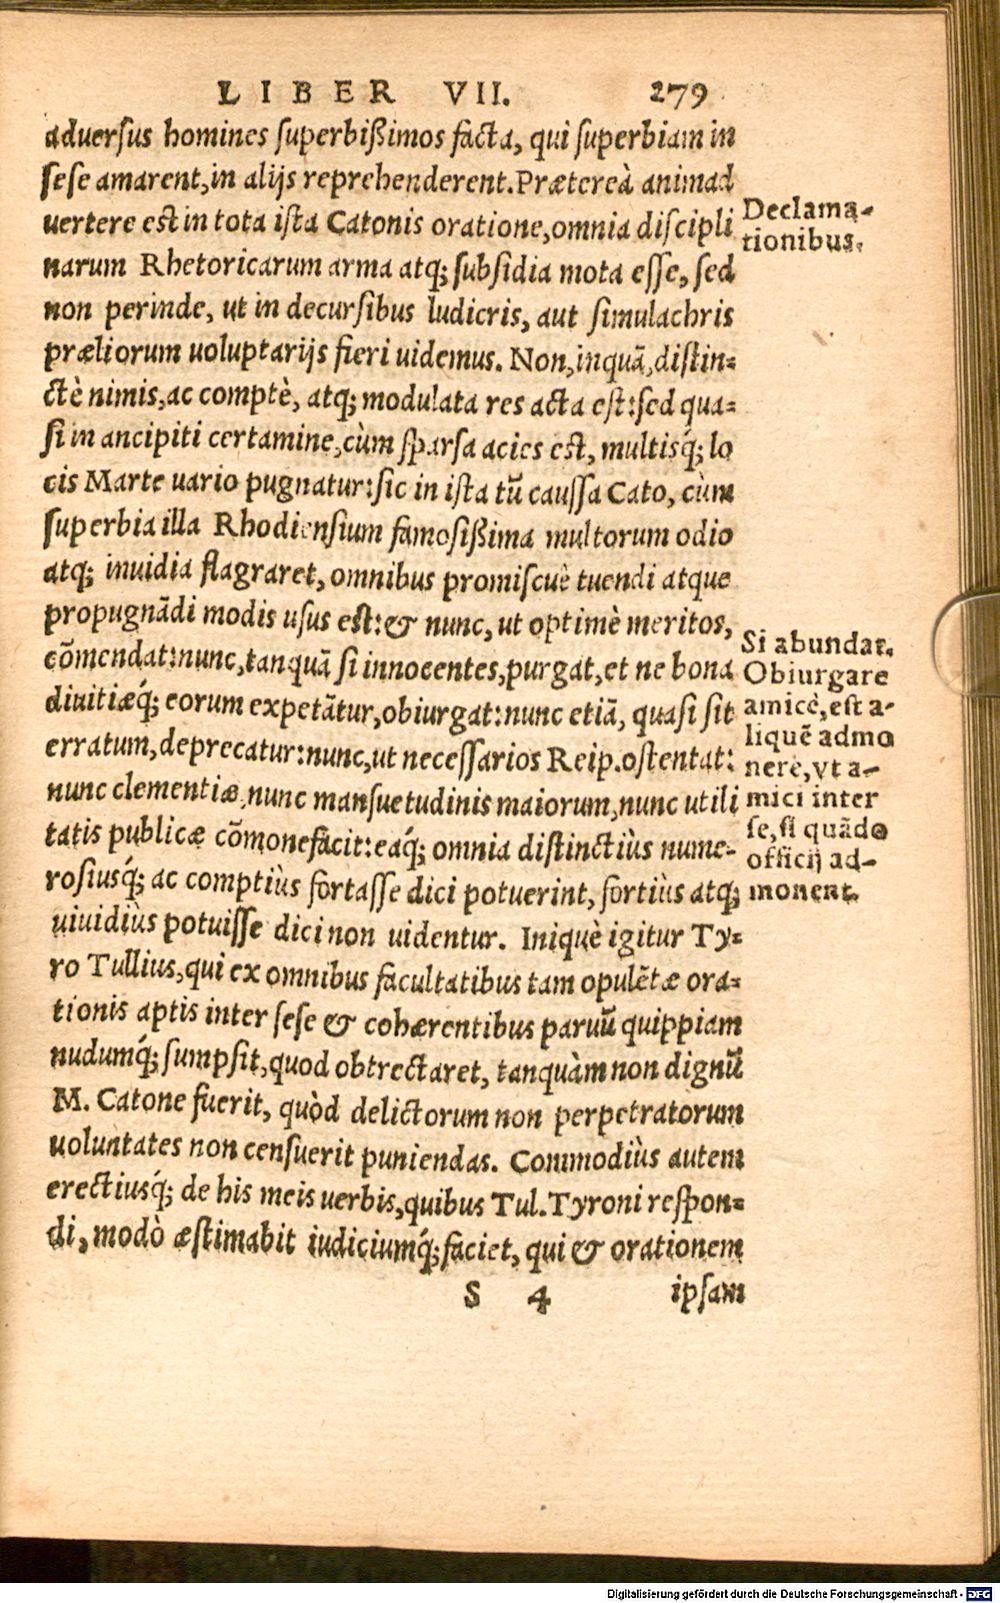 LIBER VII. 279
aduersus homines superbißimos facta, qui superbiam in
sese amarent, in alijs reprehenderent. Prætereà animad
uertere est in tota ista Catonis oratione, omnia discipli
narum Rhetoricarum arma atq; subsidia mota esse, sed
non perinde, ut in decursibus ludicris, aut simulachris
præliorum uoluptarijs fieri uidemus. Non, inquā, distin-
ctè nimis, ac comptè, atq; modulata res acta est: sed qua-
si in ancipiti certamine, cùm sparsa acies est, multisq́; lo
cis Marte uario pugnatur: sic in ista tū caussa Cato, cùm
superbia illa Rhodiensium famosißima multorum odio
atq; inuidia flagraret, omnibus promiscuè tuendi atque
propugnādi modis usus est: & nunc, ut optimè meritos,
cōmendat: nunc, tanquā si innocentes, purgat, et ne bona
diuitiæq́; eorum expetātur, obiurgat: nunc etiā, quasi sit
erratum, deprecatur: nunc, ut necessarios Reip. ostentat:
nunc clementiæ, nunc mansuetudinis maiorum, nunc utili
tatis publicæ cōmonefacit: eaq́; omnia distinctiùs nume-
rosiusq́; ac comptiùs fortasse dici potuerint, fortiùs atq;
uiuidiùs potuisse dici non uidentur. Iniquè igitur Ty-
ro Tullius, qui ex omnibus facultatibus tam opulētæ ora-
tionis aptis inter sese & cohærentibus paruū quippiam
nudumq́; sumpsit, quod obtrectaret, tanquàm non dignū
M. Catone fuerit, quòd delictorum non perpetratorum
uoluntates non censuerit puniendas. Commodiùs autem
erectiusq́; de his meis uerbis, quibus Tul. Tyroni respon-
di, modò æstimabit iudiciumq́; faciet, qui & orationem
S 4 ipsam
Declama-
tionibus.
Si abundat.
Obiurgare
amicè, est a-
liquē admo
nere, vt a-
mici inter
se, si quādo
officij ad-
monent.
Digitalisierung gefördert durch die Deutsche Forschungsgemeinschaft - DFG